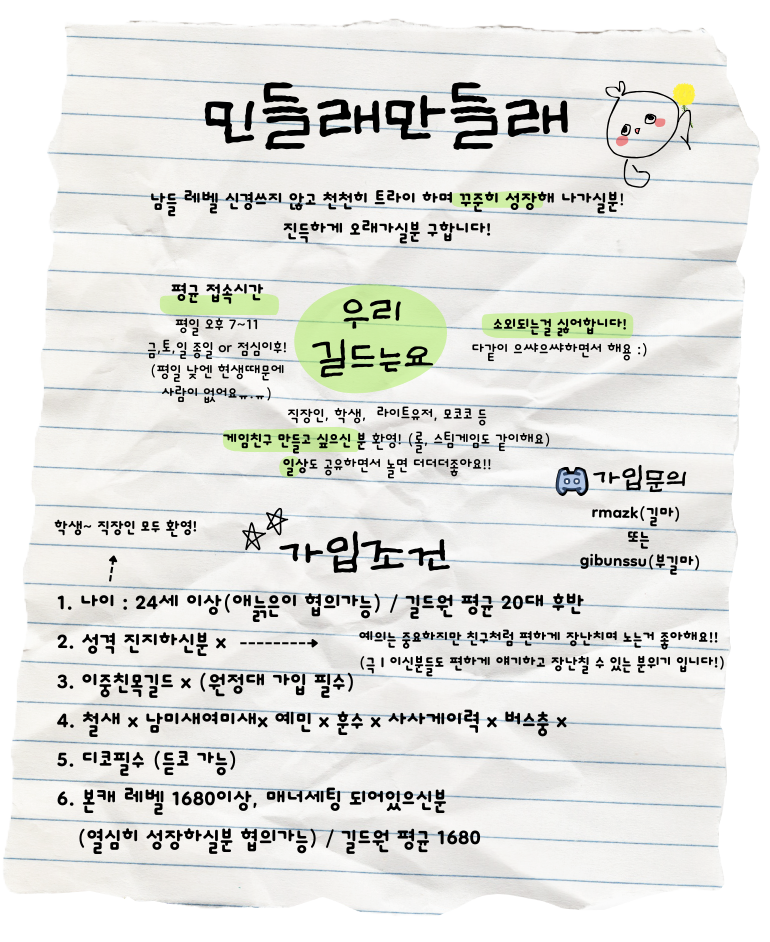 민들래만들래
남들 레벨 신경쓰지 않고 천천히 트라이 하며 꾸준히 성장해 나가실분!
진득하게 오래가실분 구합니다!
평균 접속시간
평일 오후 7~11
금,토,일 종일 or 점심이후!
(평일 낮엔 현생때문에
사람이 없어요ㅠ.ㅠ)
우리
길드는요
소외되는걸 싫어합니다!
다같이 으쌰으쌰하면서 해용 :)
직장인, 학생, 라이트유저, 모코코 등
게임친구 만들고 싶으신 분 환영! (롤, 스팀게임도 같이해요)
일상도 공유하면서 놀면 더더더좋아요!!
가입문의
rmazk(길마)
또는
gibunssu(부길마)
학생~ 직장인 모두 환영!
가입조건
1. 나이 : 24세 이상(애늙은이 협의가능) / 길드원 평균 20대 후반
2. 성격 진지하신분 x
예의는 중요하지만 친구처럼 편하게 장난치며 노는거 좋아해요!!
(극 I 이신분들도 편하게 얘기하고 장난칠 수 있는 분위기 입니다!)
3. 이중친목길드 x (원정대 가입 필수)
4. 철새 x 남미새여미새x 예민 x 훈수 x 사사게이력 x 버스충 x
5. 디코필수 (듣코 가능)
6. 본캐 레벨 1680이상, 매너세팅 되어있으신분
(열심히 성장하실분 협의가능) / 길드원 평균 1680